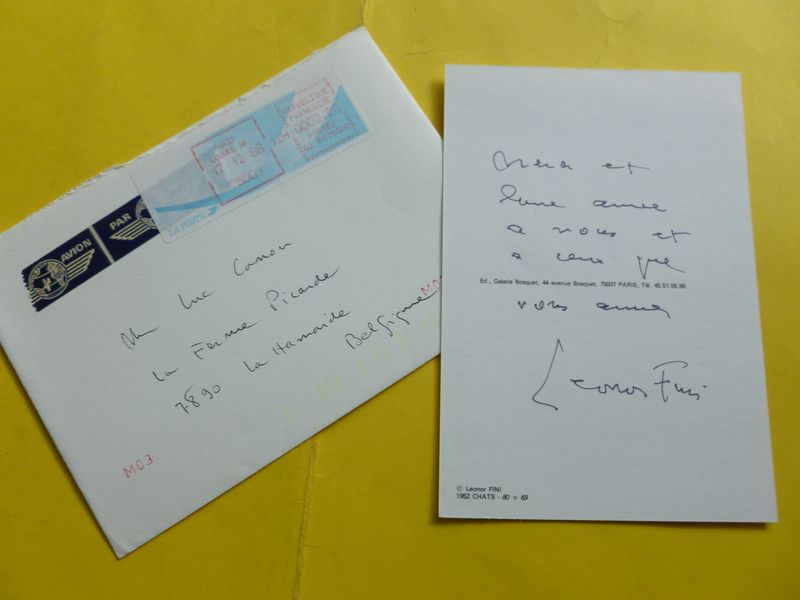 PAR AVION
LA POSTE
REPUBLIQUE
FRANCAISE
0002.20
POSTES
PARIS
17.12.88
Mr Luc Canon
La Ferme Picarde
7890 La Hamaide
Belgique
M03
Merci et
bonne année
à vous et
à ceux que
Ed., Galerie Bosquet, 44 avenue Bosquet, 75007 PARIS, Tél. 45.51.55.86
vous aimez
Leonor Fini
© Leonor FINI
1952 CHATS - 80 × 69